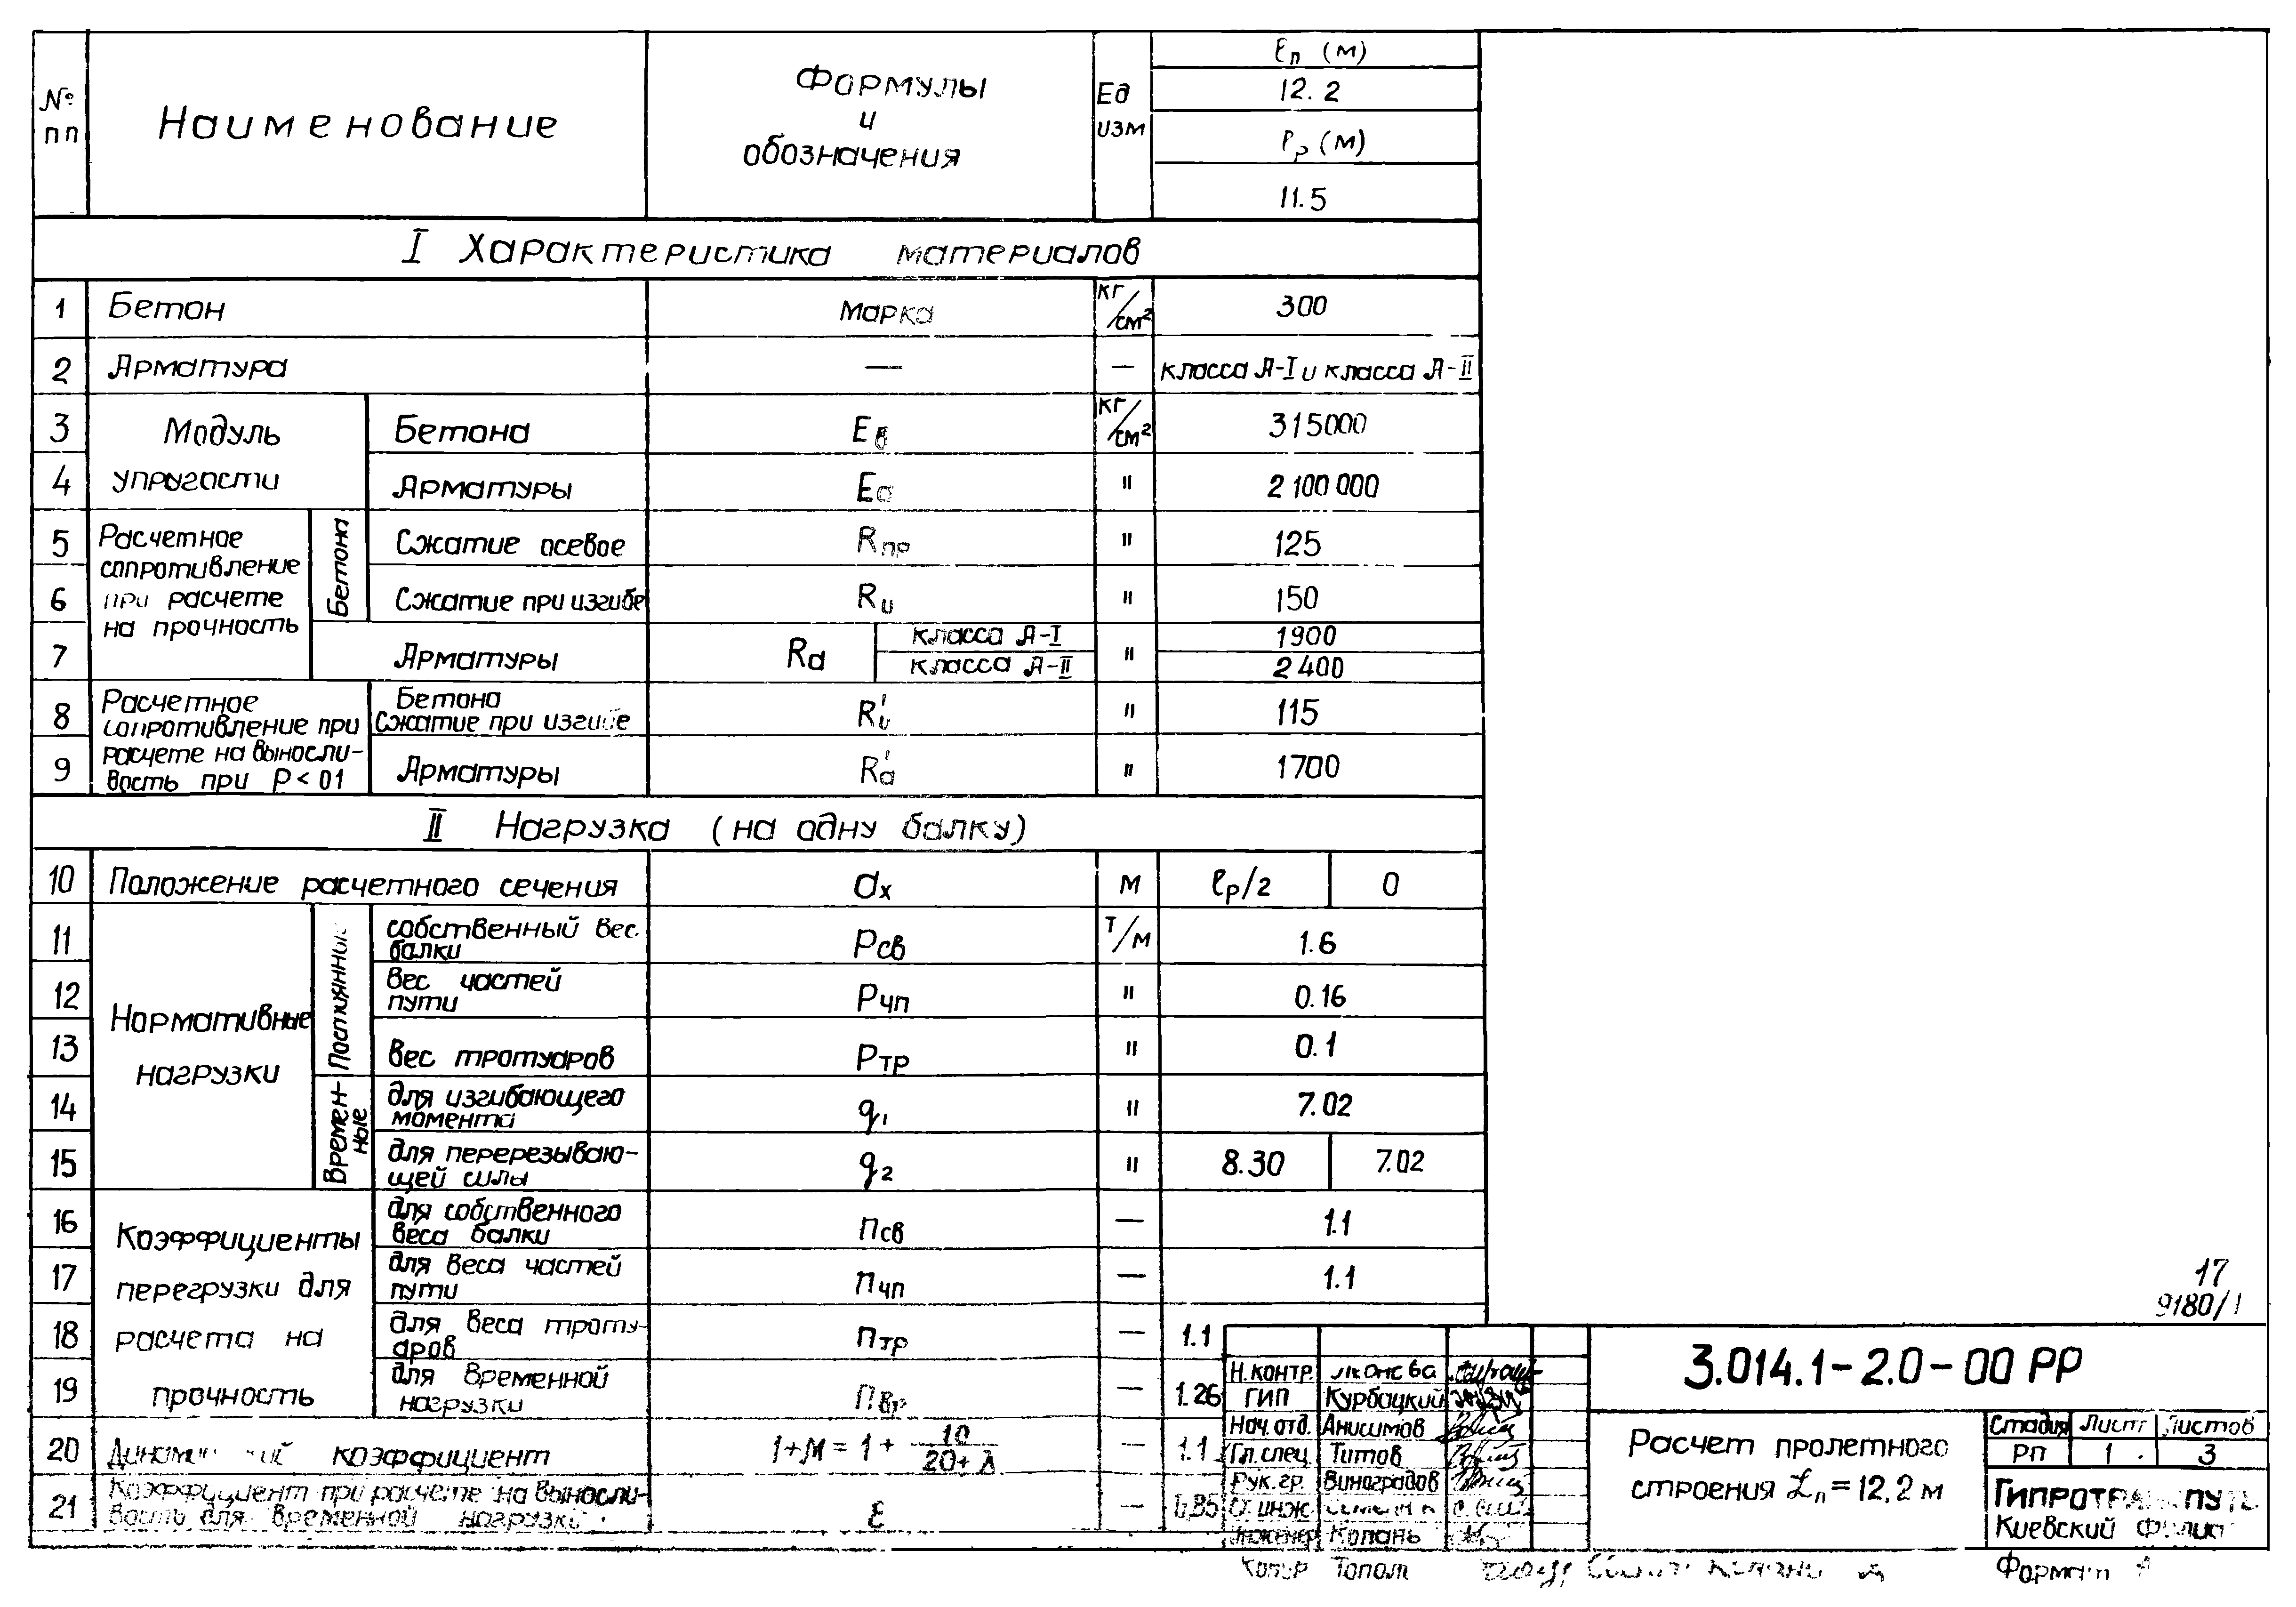 № пп Наименование Формулы и обозначения Ед изм ℓп (м)
12.2
ℓр (м)
11.5
I Характеристика материалов
1 Бетон Марка кг/см² 300
2 Арматура — — класса А-I и класса А-II
3 Модуль упругости Бетона Eв кг/см² 315000
4 Арматуры Eа " 2 100 000
5 Расчетное сопротивление при расчете на прочность Бетона Сжатие осевое Rпр " 125
6 Сжатие при изгибе Rи " 150
7 Арматуры Rа класса А-I " 1900
класса А-II 2400
8 Расчетное сопротивление при расчете на выносли-вость при P < 01 Бетона Сжатие при изгибе R'и " 115
9 Арматуры R'а " 1700
II Нагрузка (на одну балку)
10 Положение расчетного сечения αх м ℓр/2 0
11 Нормативные нагрузки Постоянные собственный вес балки Pсв т/м 1.6
12 вес частей пути Pчп " 0.16
13 вес тротуаров Pтр " 0.1
14 Времен-ные для изгибающего момента q1 " 7.02
15 для перерезываю-щей силы q2 " 8.30 7.02
16 Коэффициенты перегрузки для расчета на прочность для собственного веса балки nсв — 1.1
17 для веса частей пути nчп — 1.1
18 для веса троту-аров nтр — 1.1
19 для временной нагрузки nвр — 1.26
20 коэффициент 1+М = 1 + 10/20+λ — 1.1
21 Коэффициент при расчете на выносли-вость для временной нагрузки ε —
17
9180/1
3.014.1-2.0-00 РР
Н.контр.
ГИП Курбацкий
Нач.отд. Анисимов
Гл.спец. Титов
Рук.гр. Виноградов
Ст.инж.
Инженер Копань
Расчет пролетного строения ℒп=12.2 м
Стадия Лист Листов
РП 1 3
ГИПРОТРАНСПУТЬ
Киевский филиал
Копир Формат